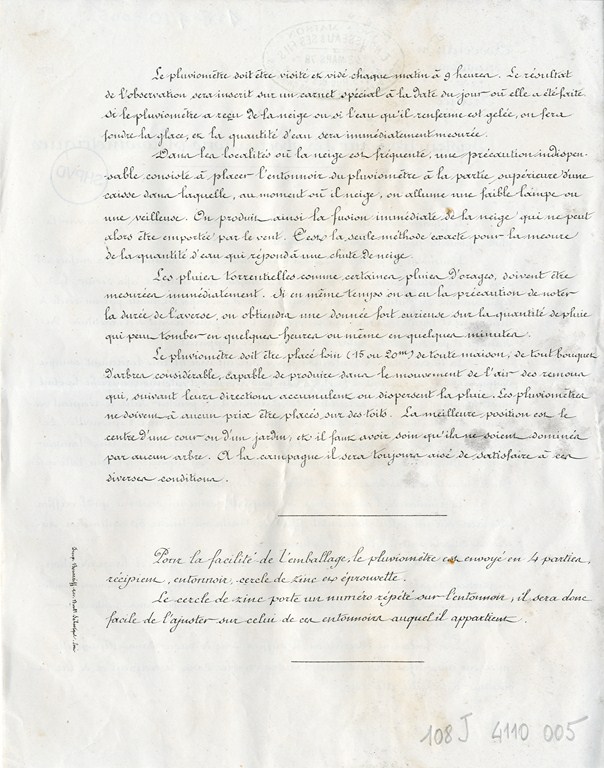 Le pluviomètre doit être visité et vidé chaque matin à 9 heures. Le résultat
de l'observation sera inscrit sur un carnet spécial à la date du jour où elle a été faite.
Si le pluviomètre a reçu de la neige ou si l'eau qu'il renferme est gelée, on fera
fondre la glace, et la quantité d'eau sera immédiatement mesurée.
Dans les localités où la neige est fréquente, une précaution indispen-
sable consiste à placer l'entonnoir du pluviomètre à la partie supérieure d'une
caisse dans laquelle, au moment où il neige, on allume une faible lampe ou
une veilleuse. On produit ainsi la fusion immédiate de la neige qui ne peut
alors être emportée par le vent. C'est la seule méthode exacte pour la mesure
de la quantité d'eau qui répond à une chute de neige.
Les pluies torrentielles comme certaines pluies d'orages, doivent être
mesurées immédiatement. Si en même temps on a eu la précaution de noter
la durée de l'averse, on obtiendra une donnée fort curieuse sur la quantité de pluie
qui peut tomber en quelques heures ou même en quelques minutes.
Le pluviomètre doit être placé loin (15 ou 20m) de toute maison, de tout bouquet
d'arbres considérable, capable de produire dans le mouvement de l'air des remous
qui, suivant leurs directions accumulent ou dispersent la pluie. Les pluviomètres
ne doivent à aucun prix être placés sur des toits. La meilleure position est le
centre d'une cour ou d'un jardin, et il faut avoir soin qu'ils ne soient dominés
par aucun arbre. A la campagne il sera toujours aisé de satisfaire à ces
diverses conditions.
Pour la facilité de l'emballage, le pluviomètre est envoyé en 4 parties,
récipient, entonnoir, cercle de zinc et éprouvette.
Le cercle de zinc porte un numéro répété sur l'entonnoir, il sera donc
facile de l'ajuster sur celui de ces entonnoirs auquel il appartient.
108J 4110 005